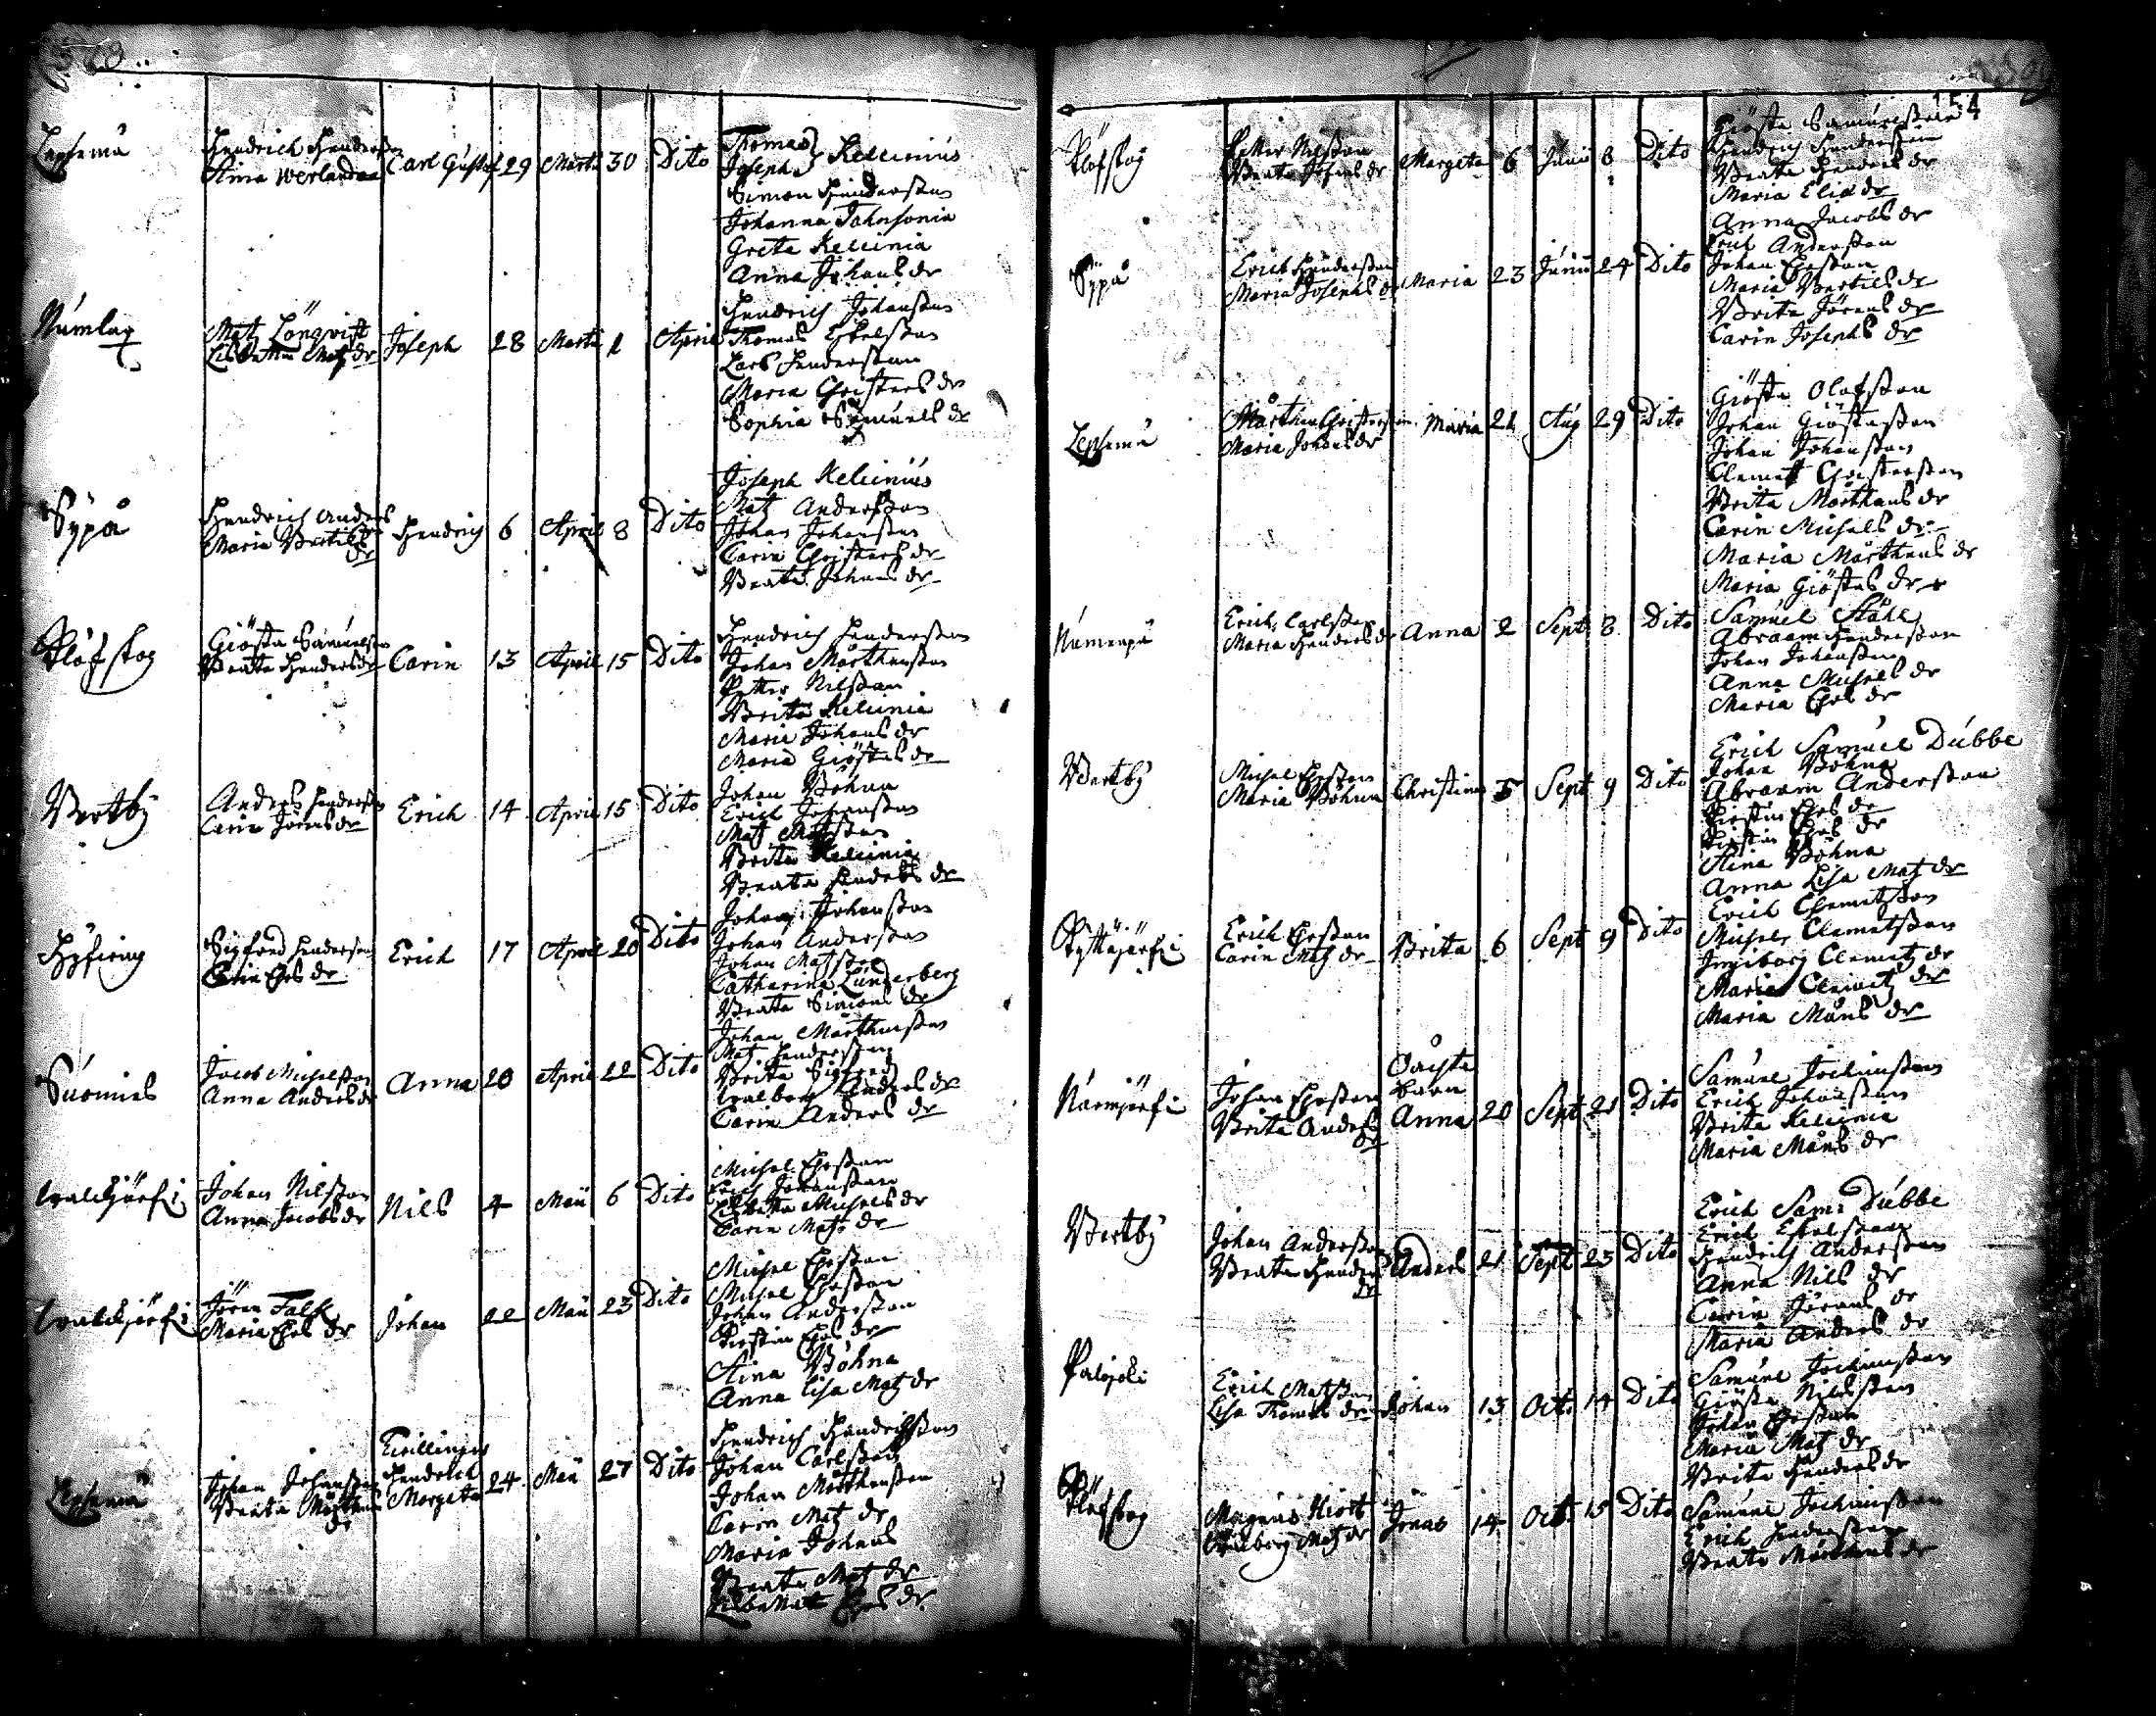 Lepsemä
Hendrich Hendersson
Stina Werlander
Carl Gustaf 29 Martii 30 Dito
Thomas
Joseph } Keleenius
Simon Hendersson
Johanna Johnsonia
Greta Keleenia
Anna Johans dr
Numlax
Matz Lönqvist
Lisbetha Matz dr
Joseph 28 Martii 1 April
Hendrich Johansson
Thomas Eskelsson
Lars Hendersson
Maria Christers dr
Sophia Samuels dr
Sypå
Hendrich Anders
Maria Bertils dr
Hendrich 6 April 8 Dito
Joseph Keleenius
Matz Andersson
Johan Johansson
Carin Christers dr
Beata Johans dr
Klöfskog
Giösta Samuelsson
Beata Henders dr
Carin 13 April 15 Dito
Hendrich Hendersson
Johan Mårthensson
Petter Nilsson
Brita Keleenia
Maria Johans dr
Maria Giöstas dr
Bertby
Anders Hendersson
Carin Jörans dr
Erich 14 April 15 Dito
Johan Böhna
Erich Johansson
Matz Matzson
Brita Keleenia
Beata Henders dr
Sigfred Hendersson
Carin Ers dr
Erich 17 April 20 Dito
Johan Johansson
Johan Andersson
Johan Matzson
Catharina Lünderberg
Beata Simons dr
Suomies
Jacob Michelsson
Anna Anders dr
Anna 20 April 22 Dito
Johan Mårthensson
Matz Hendersson
Brita Sigfreds
Walborg Anders dr
Carin Anders dr
Walckjärfvi
Johan Nilsson
Anna Jacobs dr
Nils 4 Maii 6 Dito
Michel Ersson
Erich Johansson
Lisbetha Michels dr
Carin Matz dr
Walckjärfvi
Jören Falk
Maria Ers dr
Johan 22 Maii 23 Dito
Michel Ersson
Michel Ersson
Johan Andersson
Kirstin Ers dr
Stina Böhna
Anna Lisa Matz dr
Lepsemä
Johan Johansson
Beata Mårthens dr
Tvillingar
Hendrich
Margeta
24 Maii 27 Dito
Hendrich Hendrichsson
Johan Carlsson
Johan Mårthensson
Carin Matz dr
Maria Johans
Beata Matz dr
Lisbetha Ers dr
154
Klöfskog
Petter Nilsson
Beata Johans dr
Margeta 6 Junii 8 Dito
Giösta Samuelsson
Hendrich Hendersson
Beata Henders dr
Maria Elia dr
Anna Jacobs dr
Sypå
Erich Hendersson
Maria Josephs dr
Maria 23 Junii 24 Dito
Erich Andersson
Johan Ersson
Maria Bertils dr
Brita Jörens dr
Carin Josephs dr
Lepsemä
Mårthen Christersson
Maria Johans dr
Maria 21 Aug 29 Dito
Giösta Olofsson
Johan Giöstasson
Johan Johansson
Clemet Christersson
Brita Mårthens dr
Carin Michels dr
Maria Mårthens dr
Maria Giöstas dr
Numenpä
Erich Carlsson
Maria Henders dr
Anna 2 Sept 8 Dito
Samuel Ståhl
Abraam Hendersson
Johan Johansson
Anna Michels dr
Maria Ers dr
Bertby
Michel Ersson
Maria Böhna
Christina 5 Sept 9 Dito
Erich Samuel Dubbe
Johan Böhna
Abraam Andersson
Kirstin Ers dr
Kirstin Ers dr
Stina Böhna
Anna Lisa Matz dr
Kyttäjärfvi
Erich Ersson
Carin Matz dr
Brita 6 Sept 9 Dito
Erich Clemetsson
Michel Clemetsson
Ingeborg Clemetz dr
Maria Clemetz dr
Maria Måns dr
Närmjärfvi
Johan Ersson
Brita Anders dr
Oächta
barn
Anna 20 Sept 21 Dito
Samuel Jochimsson
Erich Johansson
Brita Keleenia
Maria Måns dr
Bertby
Johan Andersson
Beata Henders dr
Anders 21 Sept 23 Dito
Erich Sam: Dubbe
Erich Eskelsson
Hendrich Andersson
Anna Nils dr
Carin Jörans dr
Maria Anders dr
Palojoki
Erich Matzson
Lisa Thomas dr
Johan 13 Octo 14 Dito
Samuel Jochimsson
Giösta Nilsson
Johan Ersson
Maria Matz dr
Brita Henders dr
Klöfskog
Magnus Hiort
Walborg Matz dr
Jonas 14 Oct. 15 Dito
Samuel Jochimsson
Erich Hendersson
Beata Mårthens dr